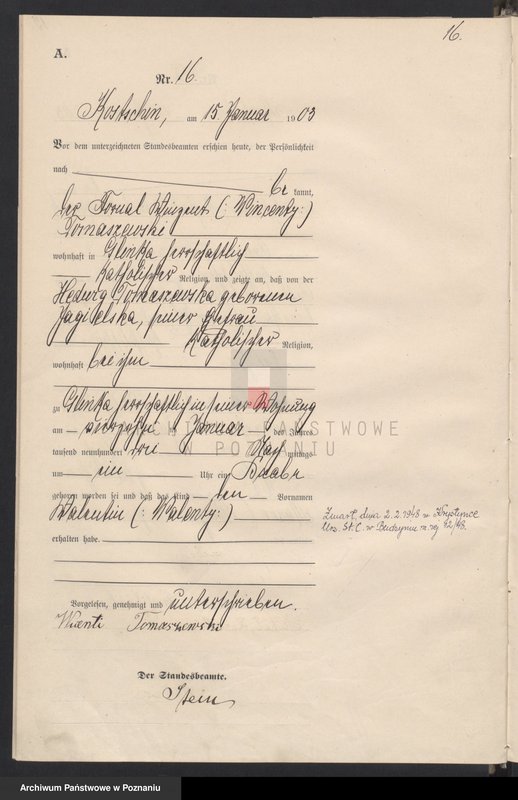 16.
A.
Nr. 16
Kostschin, am 15 Januar 1903
Vor dem unterzeichneten Standesbeamten erschien heute, der Persönlichkeit
nach be kannt,
der Fornal Vinzent (: Wincenty :)
Tomaszewski
wohnhaft in Glinka herrschaftlich
katholischer Religion, und zeigte an, daß von der
Hedwig Tomaszewska geborenen
Jagielska, seiner Ehefrau
katholischer Religion,
wohnhaft bei ihm
zu Glinka herrschaftlich in seiner Wohnung
am vierzehn Januar des Jahres
tausend neunhundert drei Nach mittags
um ein Uhr ein Knabe
geboren worden sei und daß das Kind den Vornamen
Valentin (: Walenty :)
erhalten habe.
Zmarł dnia 2.2.1948 w
Urz. St. C. w Budzyniu nr rej 42/48.
Vorgelesen, genehmigt und unterschrieben.
Tomaszewski
Der Standesbeamte.
Stein
ARCHIWUM PAŃSTWOWE
W POZNANIU
Archiwum Państwowe w Poznaniu